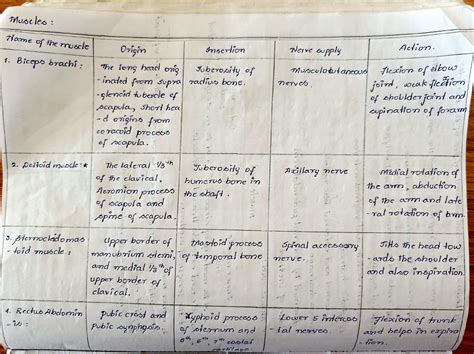 Muscles :
Name of the muscle
Origin
Insertion
Nerve supply
Action.
1. Biceps brachi:
The long head orig
-inated from supra
-glenoid tubercle of
scapula, short hea
-d origins from
coracoid process
of scapula.
Tuberosity of
radius bone.
Musculotautaneous
nerves.
flexion of elbow
joint, weak flection
of shoulder joint and
supination of foram
2. Deltoid muscle:
The lateral 1/3th
of the clavical.
Acromion process
of scapula and
spine of scapula.
Tuberosity of
humerus bone in
the shaft.
Axillary nerve
Midial rotation of
the arm, abduction
of the arm and late
-ral rotation of arm.
3. Sternocleidomas
-toid muscle:
Upper border of
manubrium sterni.
and medial 1/3th of
upper border of
clavical.
Mastoid process
of temporal bone
Spinal accessory
nerve.
Tilts the head tow
-ards the shoulder
and also inspiration.
4. Rectus Abdomin
-is:
Pubic crest and
Pubic symphysis.
Xyphoid process
of sternum and
5th, 6th, 7th costal
cartilage
Lower 5 intercos
-tal nerves.
Flexion of trunk
and helps in expirat
-ion.